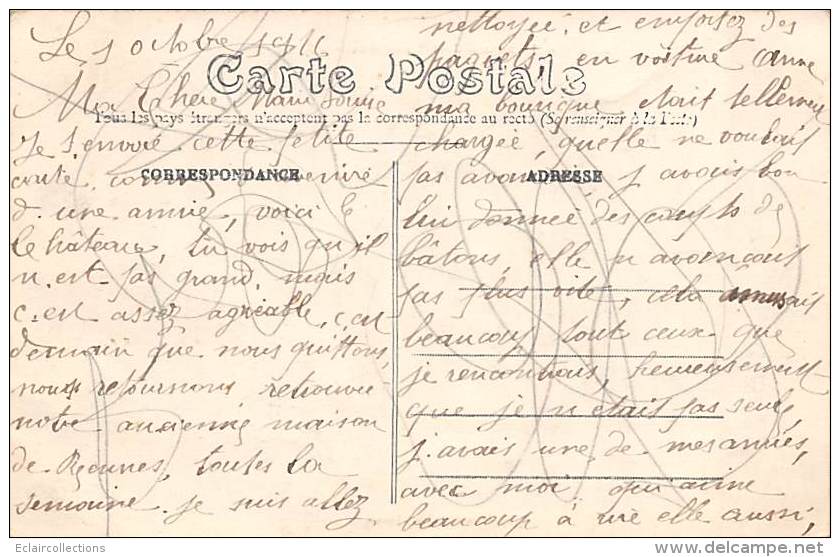 Le 1 octobre 1911
Carte Postale
Ma Chère Marie Louise
Tous les pays étrangers n'acceptent pas la correspondance au recto (Se renseigner à la Poste)
Je t'envoie cette petite
CORRESPONDANCE
carte, comme souvenir
d'une amie, voici le
le château, tu vois qu'il
n'est pas grand, mais
c'est assez agréable, c'est
demain que nous quittons,
nous retournons retrouver
notre ancienne maison
de Rennes, toutes la
semaine je suis allez
nettoyée, et emportez des
paquets, en voiture
ma bourique était tellement
chargée, quelle ne voulait
ADRESSE
pas avancée, j'avais bon
lui donnée des coups de
bâtons, elle n'avançait
pas plus vite, cela amusait
beaucoup tout ceux que
je rencontrais, heureusement
que je n'étais pas seule,
j'avais une de mes amies,
avec moi, qui aime
beaucoup à rire elle aussi,
Eclaircollections
www.delcampe.net